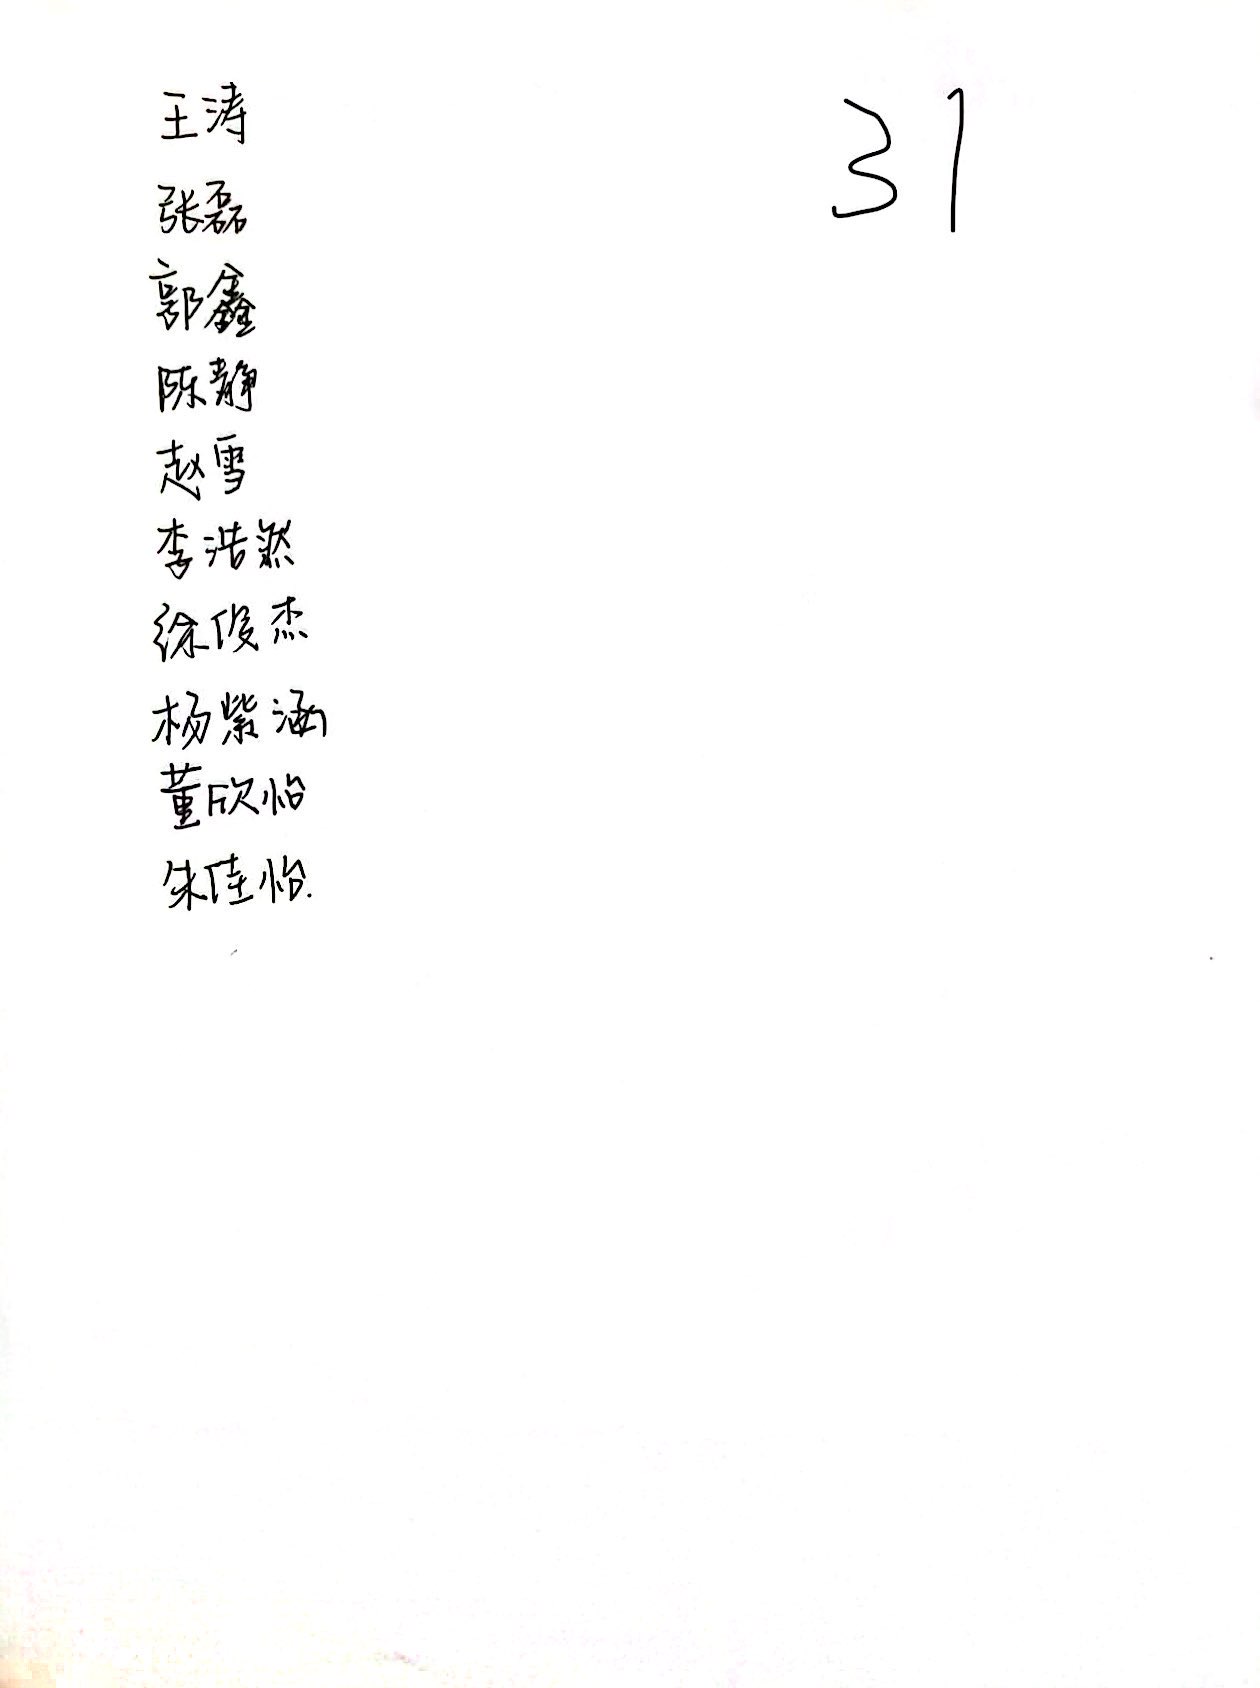 王涛
31
张磊
郭鑫
陈静
赵雪
李浩然
徐俊杰
杨紫涵
董欣怡
朱佳怡.